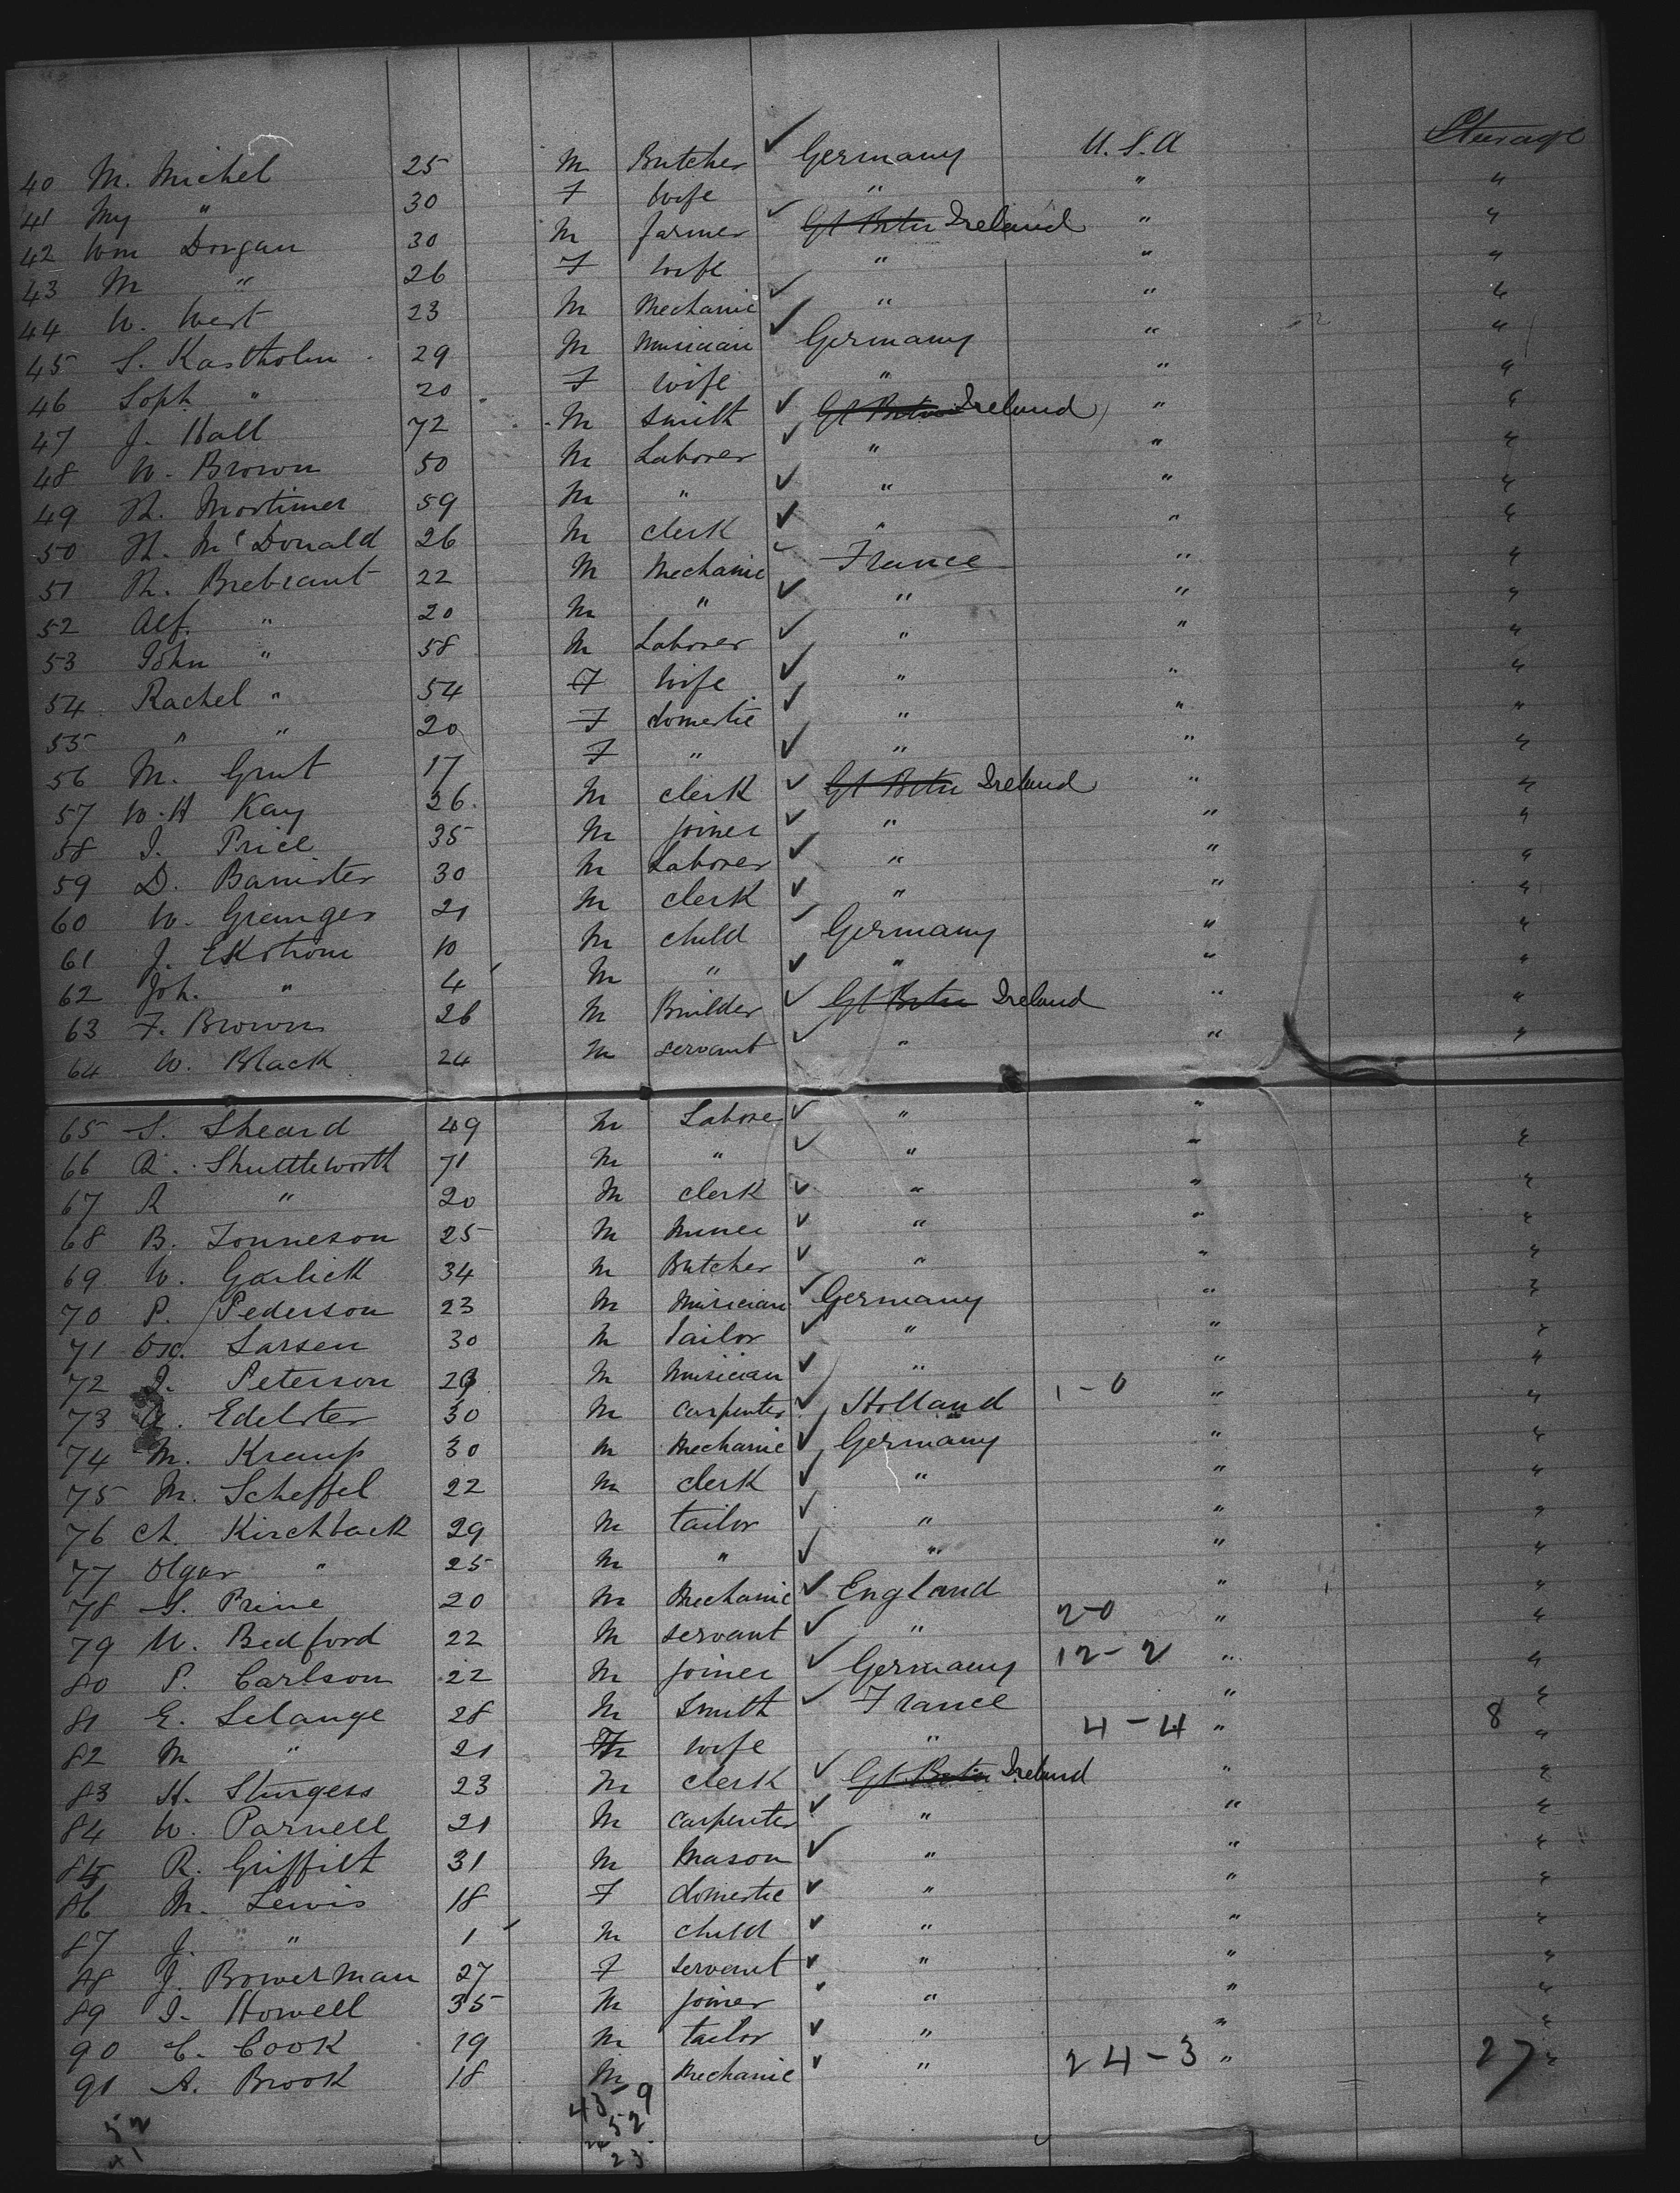 Steerage
40 M. Michel 25 M Butcher ✓ Germany U.S.A "
41 My " 30 F wife " " "
42 Wm Dorgan 30 M farmer ✓ Gt Britn Ireland " "
43 M " 26 F wife " " "
44 W. West 23 M Mechanic ✓ " " "
45 S. Kastholm 29 M Musician ✓ Germany " "
46 Soph " 20 F wife " " "
47 J. Hall 72 M Smith ✓ Gt Britn Ireland " "
48 W. Brown 50 M Laborer ✓ " " "
49 Th. Mortimer 59 M " ✓ " " "
50 Th. McDonald 26 M clerk ✓ " " "
51 Th. Brebrant 22 M Mechanic ✓ France " "
52 Alf. " 20 M " ✓ " " "
53 John " 58 M Laborer ✓ " " "
54 Rachel " 54 F wife ✓ " " "
55 " " 20 F domestic ✓ " " "
56 M. Grut 17 F " ✓ " " "
57 W.H Kay 26 M clerk ✓ Gt Britn Ireland " "
58 J. Price 35 M joiner ✓ " " "
59 D. Banister 30 M Laborer ✓ " " "
60 W. Granger 21 M clerk ✓ " " "
61 J. Ekstrom 10 M child ✓ Germany " "
62 Joh. " 4 M " ✓ " " "
63 F. Brown 26 M Builder ✓ Gt Britn Ireland " "
64 W. Black 24 M servant ✓ " " "
65 S. Sheard 49 M Labore ✓ " " "
66 R. Shuttleworth 71 M " ✓ " " "
67 R " 20 M clerk ✓ " " "
68 B. Tonneson 25 M Miner ✓ " " "
69 W. Garlick 34 M Butcher ✓ " " "
70 P. Pederson 23 M Musician ✓ Germany " "
71 Ox. Larsen 30 M tailor ✓ " " "
72 J. Peterson 29 M Musician ✓ " " "
73 Edelster 30 M carpenter ✓ Holland 1-0 " "
74 M. Kramp 30 M Mechanic ✓ Germany " "
75 M. Scheffel 22 M clerk ✓ " " "
76 Ch. Kirchback 29 M tailor ✓ " " "
77 Olgar " 25 M " ✓ " " "
78 S. Prine 20 M Mechanic ✓ England " "
79 W. Bedford 22 M servant ✓ " 2-0 " "
80 P. Carlson 22 M joiner ✓ Germany 12-2 " "
81 E. Lelange 28 M Smith ✓ France " "
82 M " 21 F wife " 4-4 " 8 "
83 H. Sturgess 23 M clerk ✓ Gt Britn Ireland " "
84 W. Parnell 21 M carpenter ✓ " " "
85 R. Griffilt 31 M Mason ✓ " " "
86 M. Lewis 18 F domestic ✓ " " "
87 J. " 1 M child ✓ " " "
88 J. Bowerman 27 F servant ✓ " " "
89 J. Howell 35 M joiner ✓ " " "
90 C. Cook 19 M tailor ✓ " " "
91 A. Brook 18 M Mechanic ✓ " 24-3 " 27 "
43-9
52 52
41 23